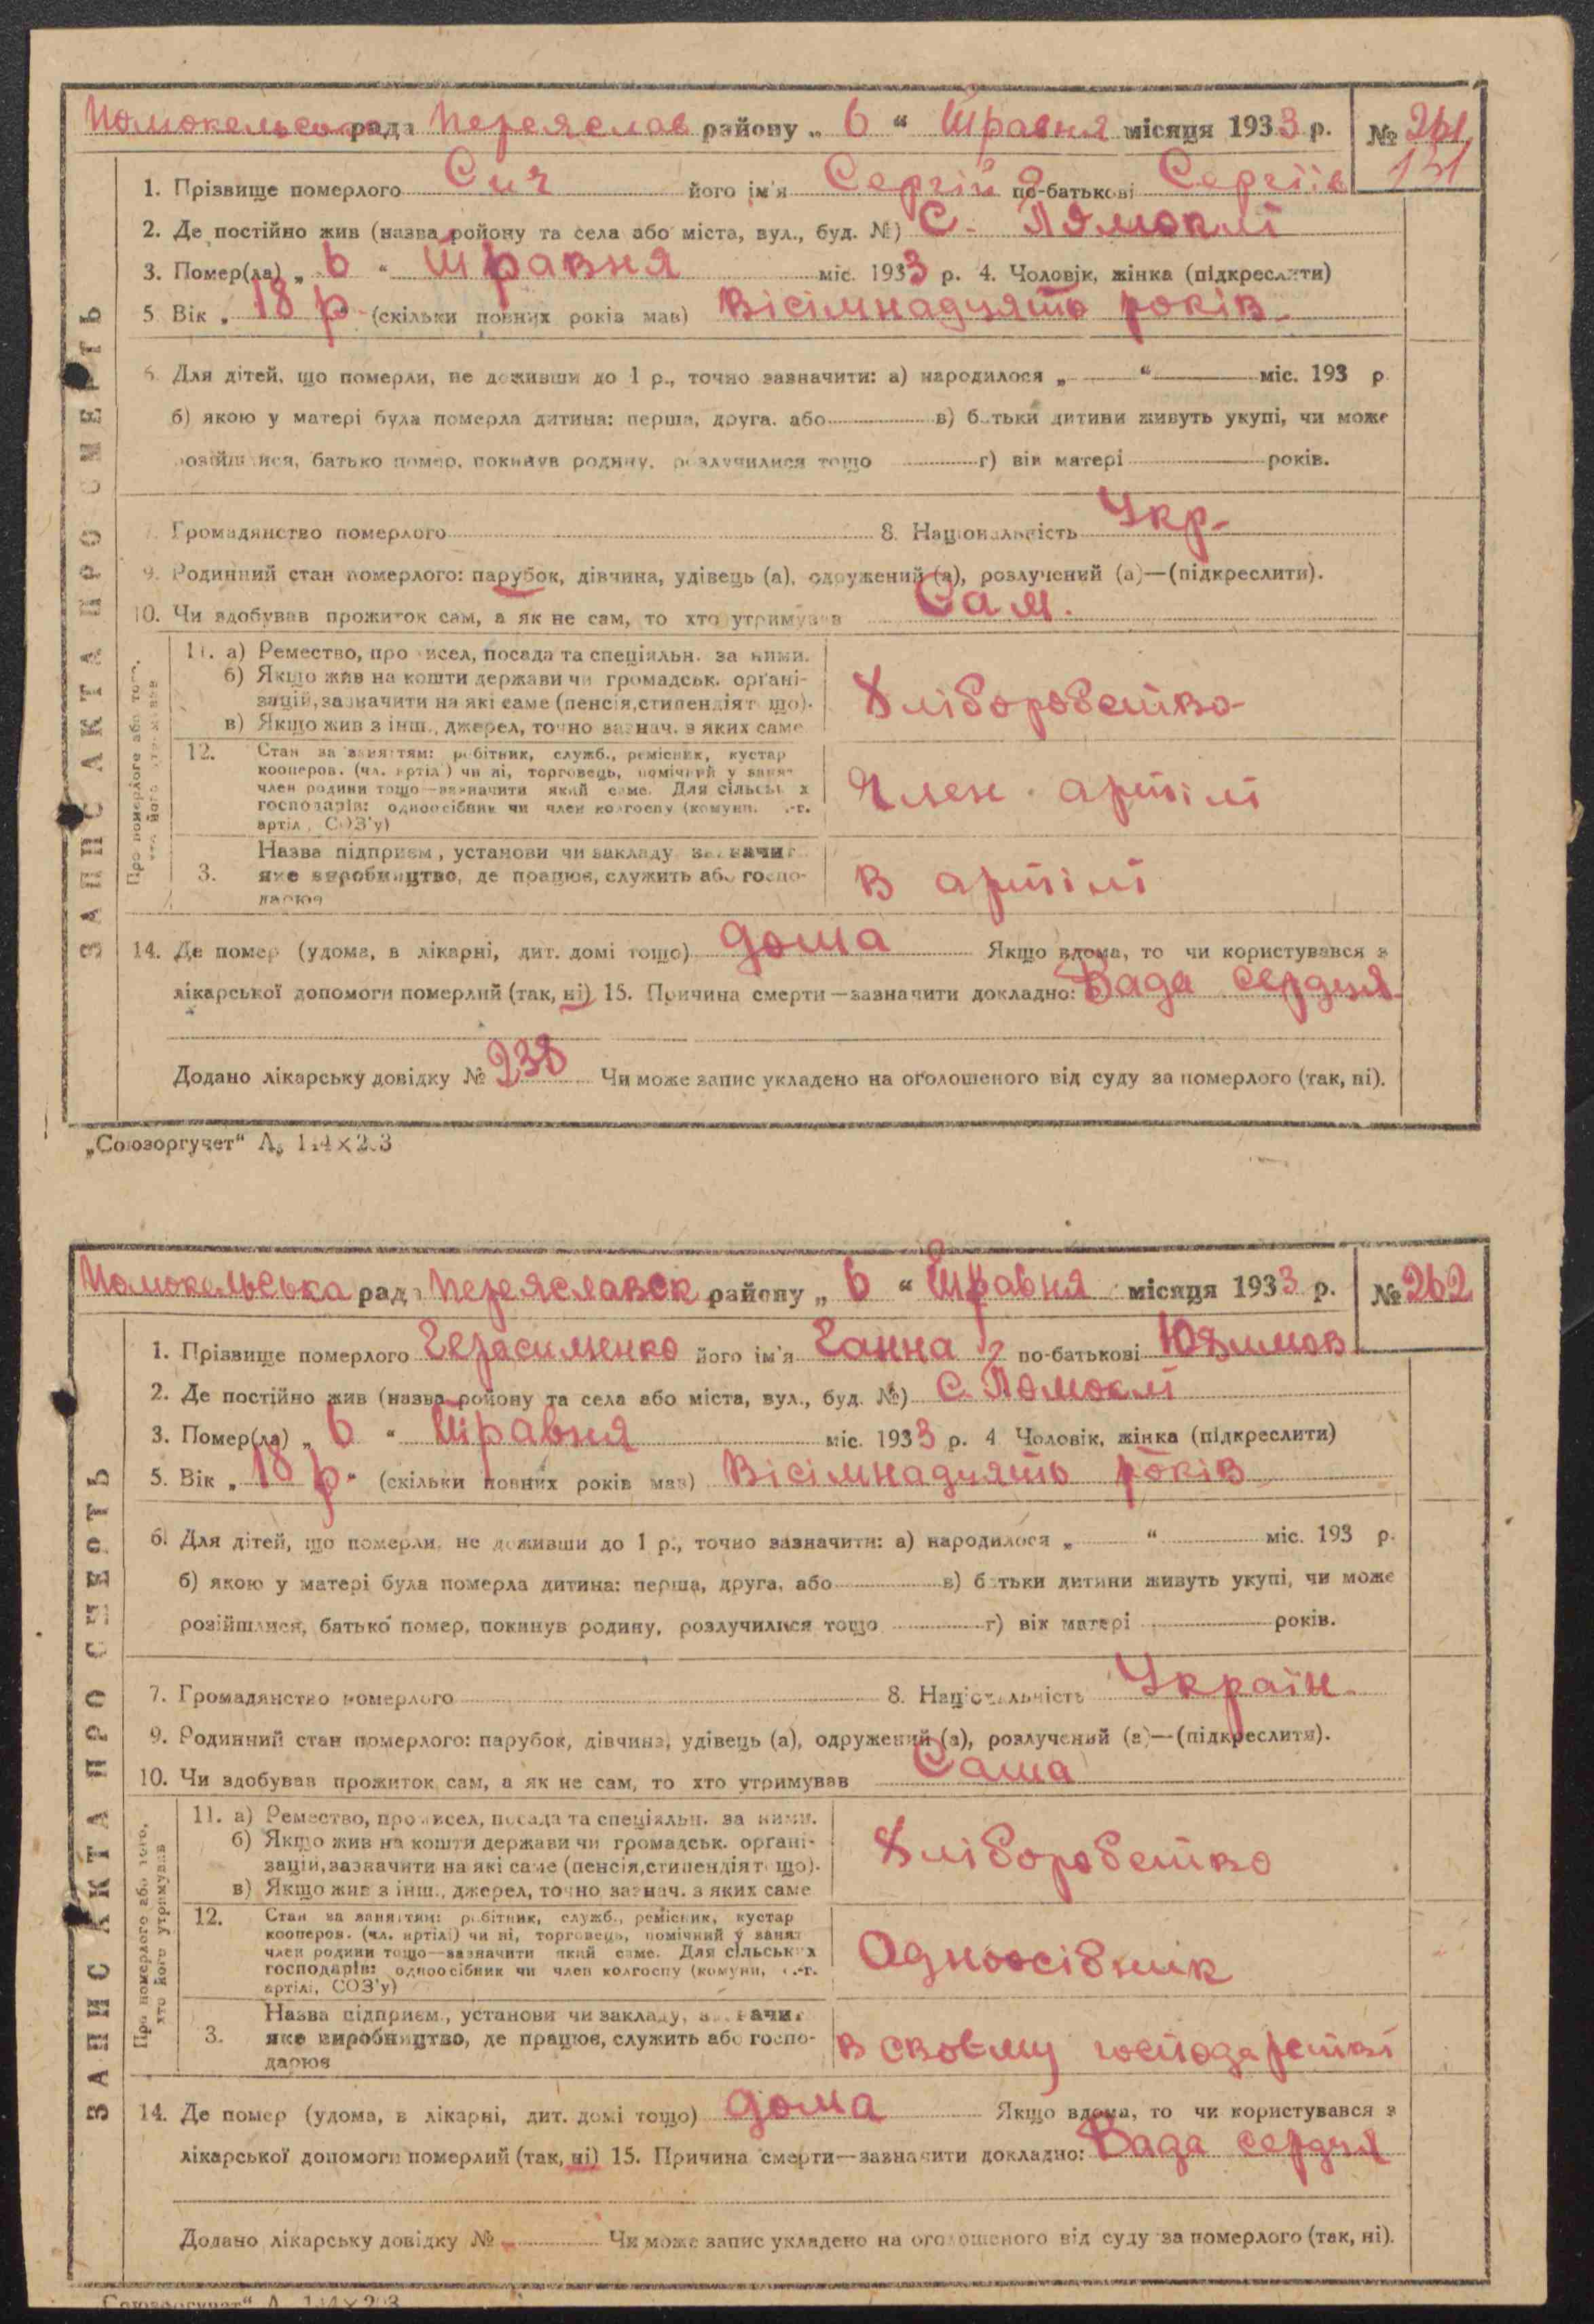 Помокельська рада Переяслав району „ 6 “ Травня місяця 1933 р. № 261
131
1. Прізвище померлого Сич його ім'я Сергій по-батькові Сергіїв
2. Де постійно жив (назва району та села або міста, вул., буд. №) С. Помоклі
3. Помер(ла) „ 6 “ Травня міс. 1933 р. 4. Чоловік, жінка (підкреслити)
5 Вік „ 18 р. (скільки повних років мав) Вісімнадцять років
6. Для дітей, що померли, не доживши до 1 р., точно зазначити: а) народилося „ “ міс. 193 р.
б) якою у матері була померла дитина: перша, друга, або в) батьки дитини живуть укупі, чи може
розійшлися, батько помер, покинув родину, розлучилися тощо г) вік матері років.
7. Громадянство померлого 8. Національність Укр.
9. Родинний стан померлого: парубок, дівчина, удівець (а), одружений (а), розлучений (а)—(підкреслити).
10. Чи здобував прожиток сам, а як не сам, то хто утримував Сам.
ЗАПИС АКТА ПРО СМЕРТЬ
Про померлого або того, хто його утримував
11. а) Ремество, промисел, посада та спеціяльн. за ними.
б) Якщо жив на кошти держави чи громадськ. органі-
зацій, зазначити на які саме (пенсія, стипендіят що).
в) Якщо жив з інш., джерел, точно зазнач. з яких саме
Хліборобство
12. Стан за заняттям: робітник, служб., ремісник, кустар
кооперов. (чл. артілі) чи ні, торговець, помічний у занят
член родини тощо—зазначити який саме. Для сільських
господарів: одноосібник чи член колгоспу (комуни, с.-г.
артілі, СОЗ'у)
Член артілі
3. Назва підприєм., установи чи закладу, зазначит
яке виробництво, де працює, служить або госпо-
дарює
В артілі
14. Де помер (удома, в лікарні, дит. домі тощо) дома Якщо вдома, то чи користувався з
лікарської допомоги померлий (так, ні) 15. Причина смерти—зазначити докладно: Вада серця
Додано лікарську довідку № 238 Чи може запис укладено на оголошеного від суду за померлого (так, ні).
„Союзоргучет“
Помокельська рада Переяславск району „ 6 “ Травня місяця 1933 р. № 262
1. Прізвище померлого Герасименко його ім'я Ганна по-батькові Юхимов
2. Де постійно жив (назва району та села або міста, вул., буд. №) С. Помоклі
3. Помер(ла) „ 6 “ Травня міс. 1933 р. 4 Чоловік, жінка (підкреслити)
5. Вік „ 18 р. (скільки повних років мав) Вісімнадцять років
6. Для дітей, що померли, не доживши до 1 р., точно зазначити: а) народилося „ “ міс. 193 р.
б) якою у матері була померла дитина: перша, друга, або в) батьки дитини живуть укупі, чи може
розійшлися, батько помер, покинув родину, розлучилися тощо г) вік матері років.
7. Громадянство померлого 8. Національність Україн.
9. Родинний стан померлого: парубок, дівчина, удівець (а), одружений (а), розлучений (а)—(підкреслити).
10. Чи здобував прожиток сам, а як не сам, то хто утримував Сама
ЗАПИС АКТА ПРО СМЕРТЬ
Про померлого або того, хто його утримував
11. а) Ремество, промисел, посада та спеціяльн. за ними.
б) Якщо жив на кошти держави чи громадськ. органі-
зацій, зазначити на які саме (пенсія, стипендіят що).
в) Якщо жив з інш., джерел, точно зазнач. з яких саме
Хліборобство
12. Стан за заняттям: робітник, служб., ремісник, кустар
кооперов. (чл. артілі) чи ні, торговець, помічний у занят
член родини тощо—зазначити який саме. Для сільських
господарів: одноосібник чи член колгоспу (комуни, с.-г.
артілі, СОЗ'у)
Одноосібник
3. Назва підприєм., установи чи закладу, зазначит
яке виробництво, де працює, служить або госпо-
дарює
в своєму господарстві
14. Де помер (удома, в лікарні, дит. домі тощо) дома Якщо вдома, то чи користувався з
лікарської допомоги померлий (так, ні) 15. Причина смерти—зазначити докладно: Вада серця
Додано лікарську довідку № Чи може запис укладено на оголошеного від суду за померлого (так, ні).